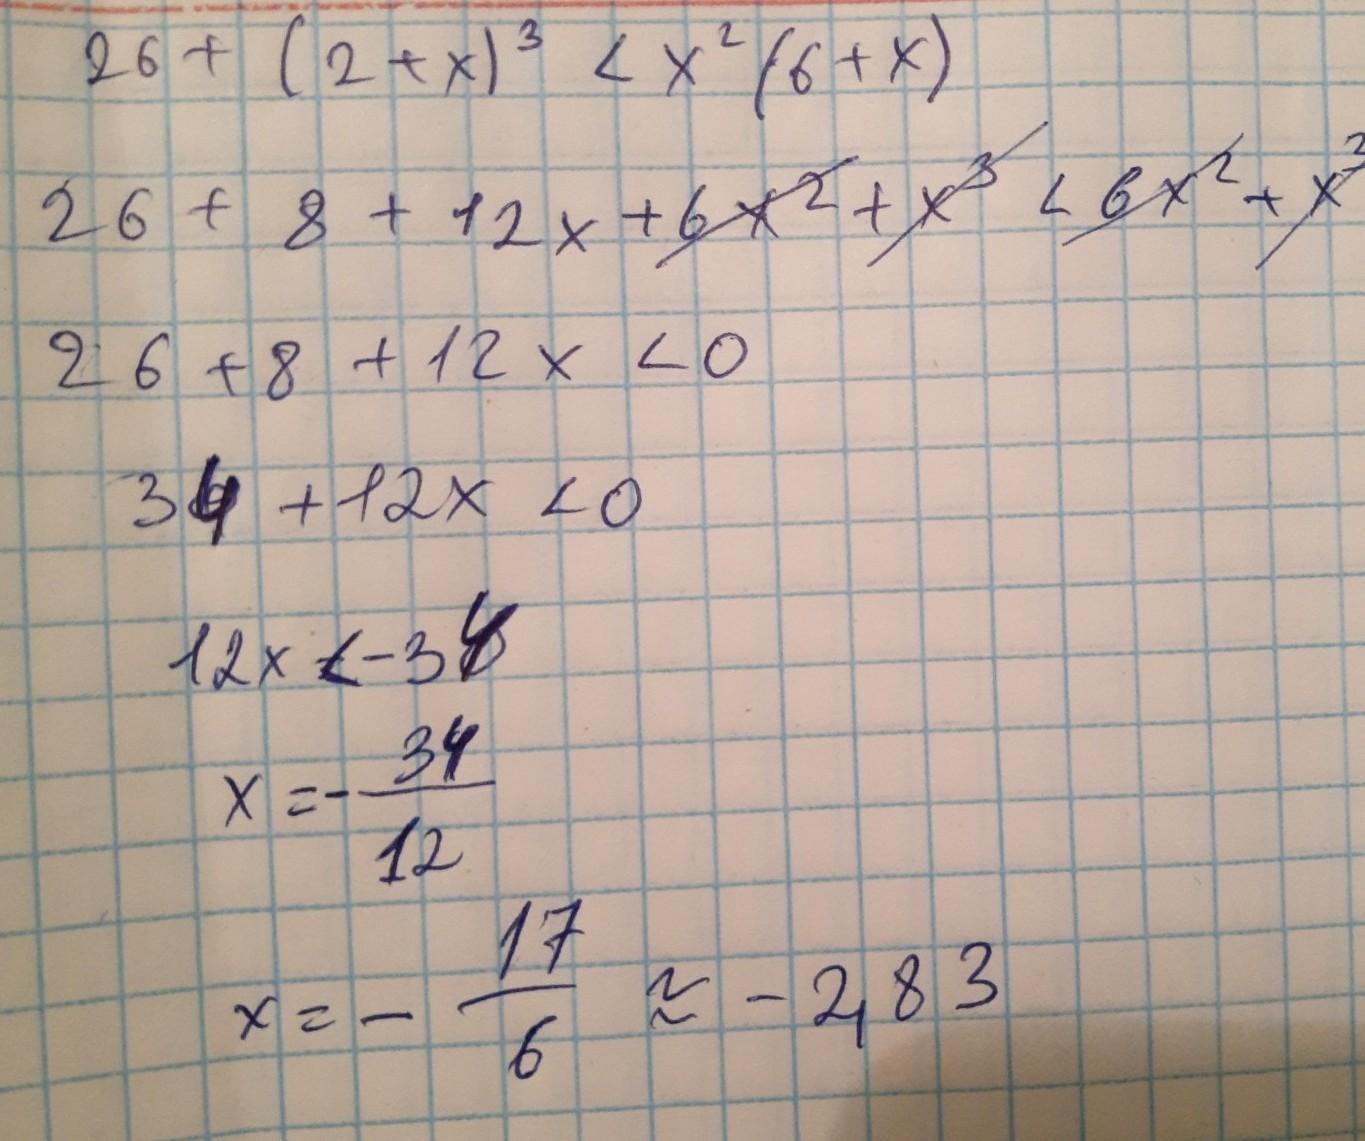 26 + (2 + x)³ < x² (6 + x)
26 + 8 + 12x + 6x² + x³ < 6x² + x³
26 + 8 + 12x < 0
34 + 12x < 0
12x < -34
x = - 34/12
x = - 17/6 ≈ - 2,83